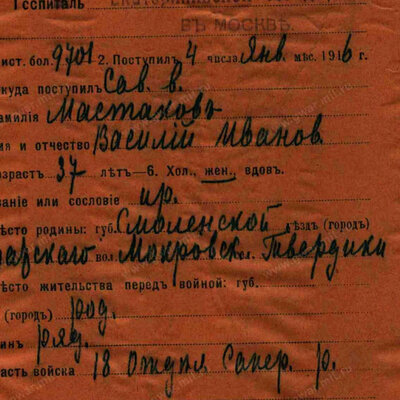 Госпиталь
ВЪ МОСКВѢ.
ист. бол. 9701 2. Поступил 4 числа Янв мѣс. 1916 г.
куда поступил Сав. в.
амилія Мастаковъ
я и отчество Василій Иванов
зрастъ 37 лѣтъ—6. Хол., жен., вдов.
званіе или сословіе кр.
ѣсто родины: губ. Смоленской ѣздъ (городъ)
вол. Мокровск. сел. Твердики
ѣсто жительства передъ войной: губ.
(городъ) род.
ин ряд.
асть войска 18 Сапер. р.